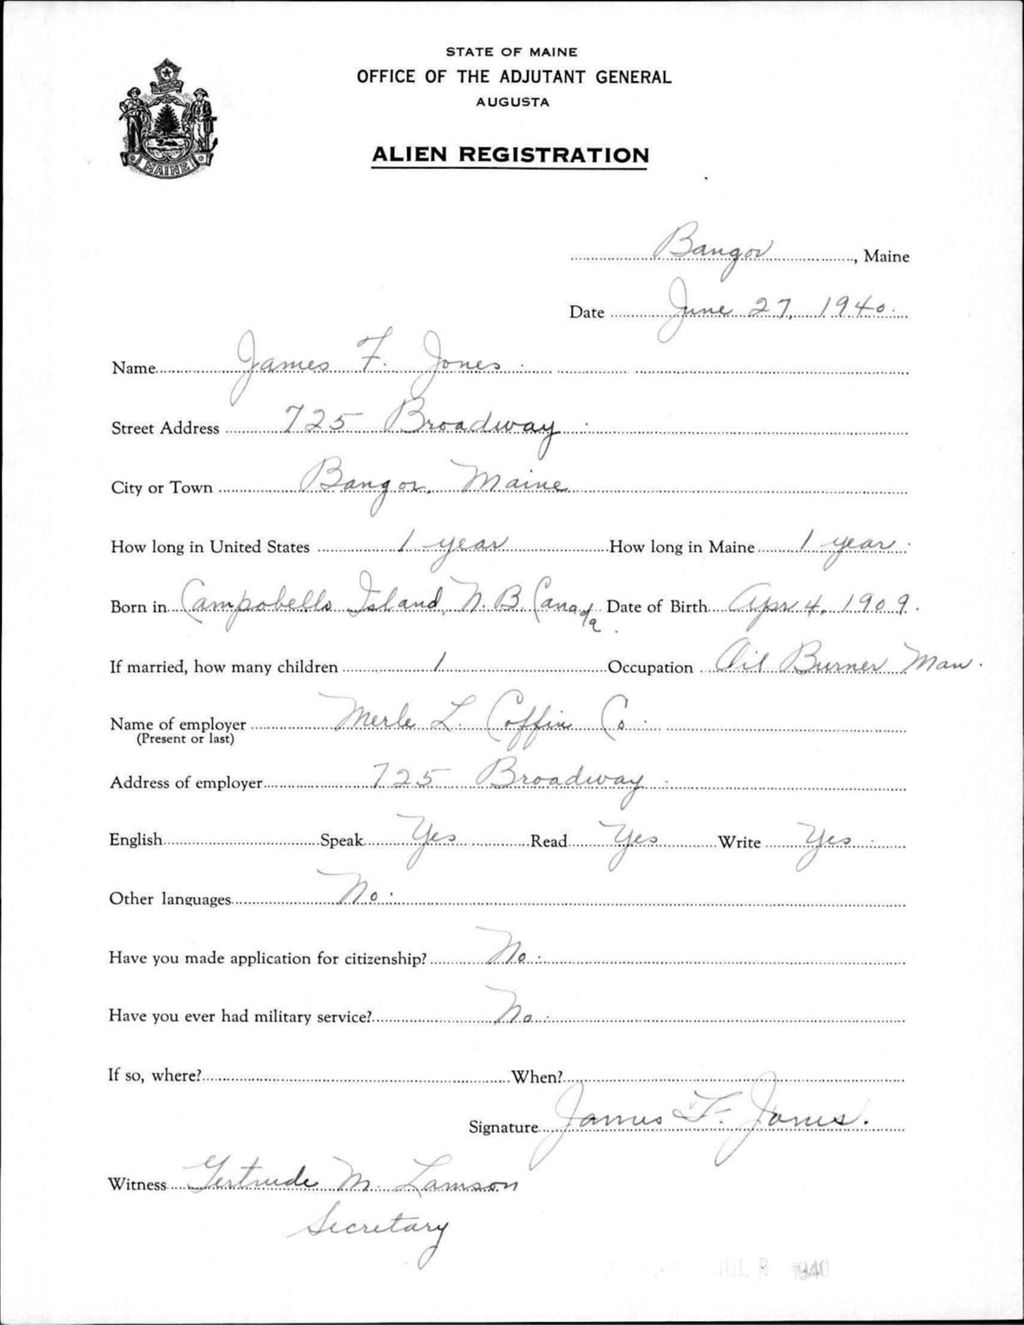 STATE OF MAINE
OFFICE OF THE ADJUTANT GENERAL
AUGUSTA
ALIEN REGISTRATION
MAINE
Bangor, Maine
Date June 27, 1940.
Name James F. Jones.
Street Address 725 Broadway
City or Town Bangor, Maine
How long in United States 1 year How long in Maine 1 year.
Born in Campobello Island, N. B. Canada. Date of Birth Apr 4, 1909.
If married, how many children 1 Occupation Oil Burner Man.
Name of employer Merle L. Coffin Co.
(Present or last)
Address of employer 725 Broadway.
English Speak Yes Read Yes Write Yes.
Other languages No.
Have you made application for citizenship? No.
Have you ever had military service? No.
If so, where? When?
Signature James F. Jones.
Witness Gertrude M. Lamson
Secretary
JUL 8 1940